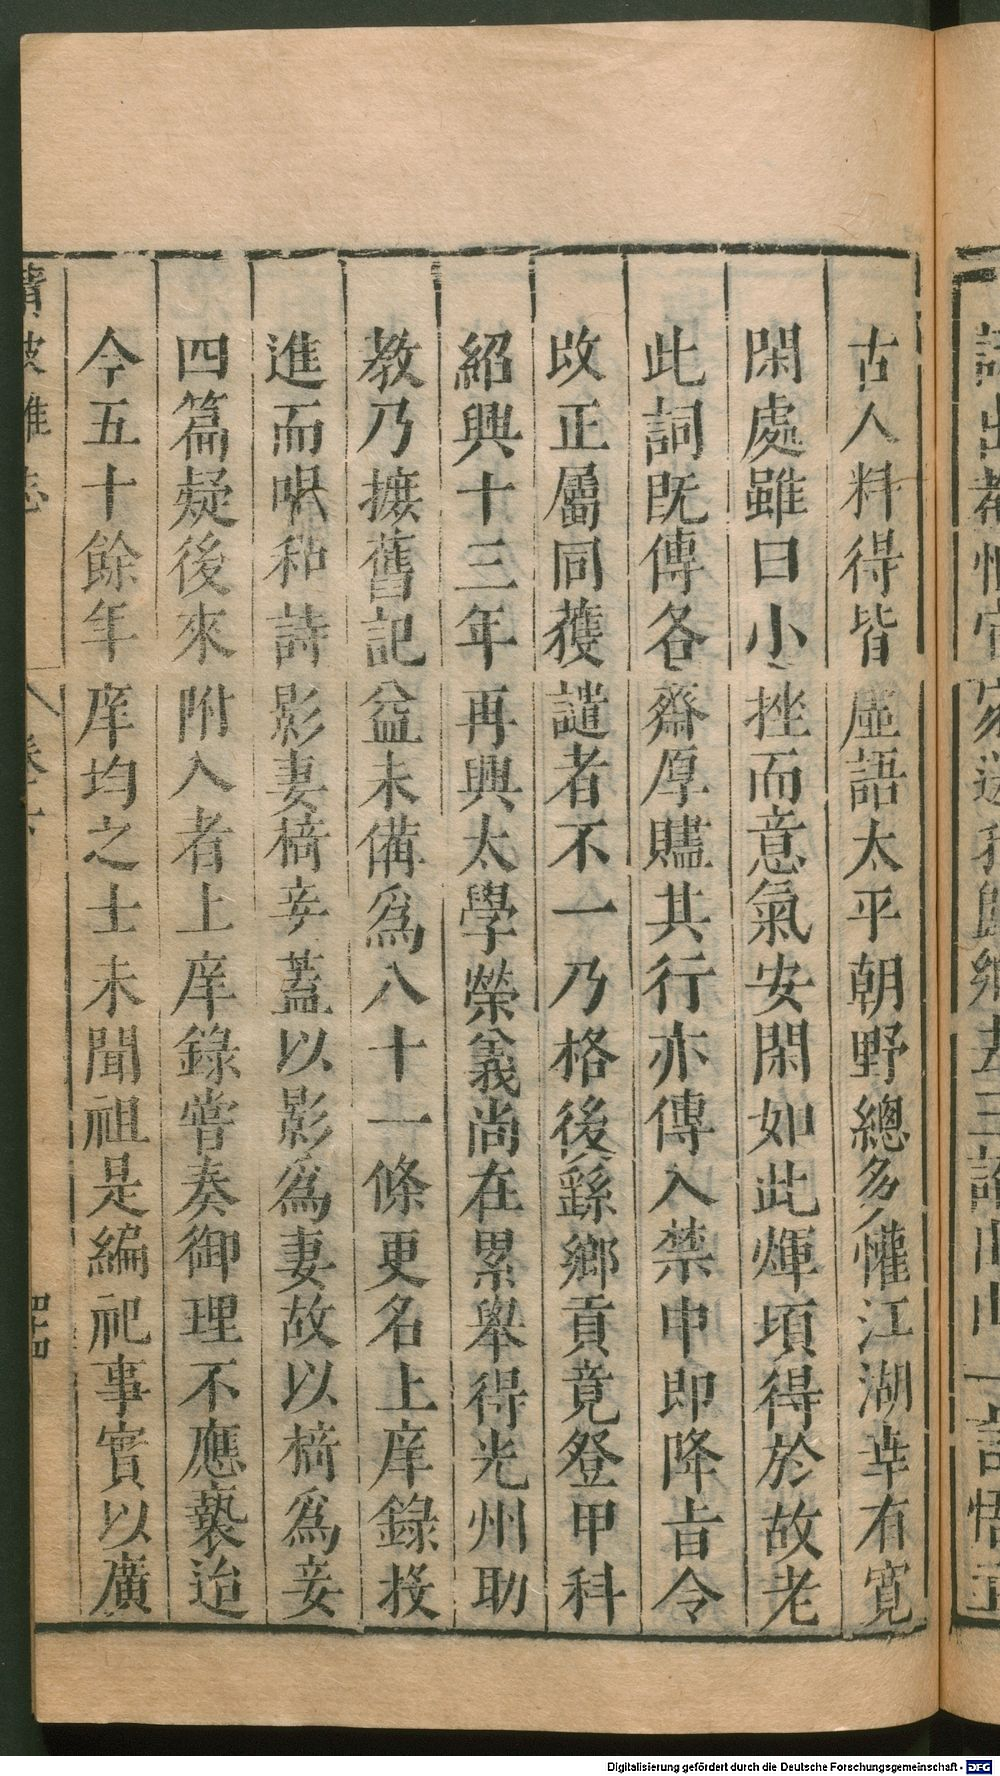 古人料得皆虛語太平朝野總多懽江湖幸有寬
閑處雖曰小挫而意氣安閑如此煇頃得於故老
此詞既傳各齋厚贐其行亦傳入禁中即降旨令
改正屬同獲譴者不一乃格後繇鄉貢竟登甲科
紹興十三年再興太學榮義尚在累舉得光州助
教乃摭舊記益未備爲八十一條更名上庠錄投
進而唄和詩影妻椅妾蓋以影爲妻故以椅爲妾
四篇疑後來附入者上庠錄嘗奏御理不應褻迨
今五十餘年庠均之士未聞祖是編祀事實以廣
清波雜志
卷十
四
Digitalisierung gefördert durch die Deutsche Forschungsgemeinschaft - DFG